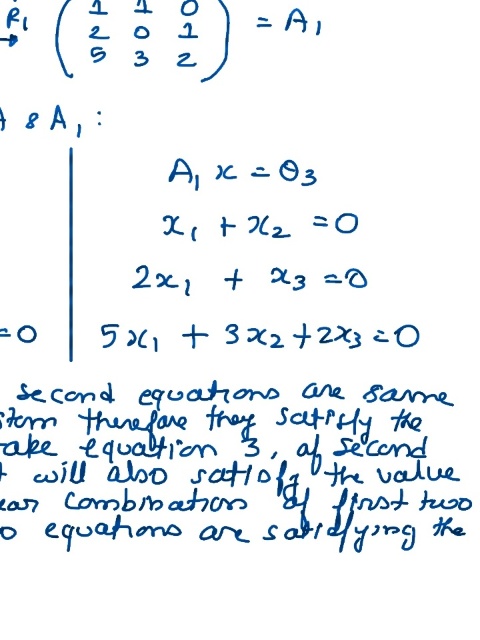 R₁ → ( 1 1 0
2 0 1 = A₁
5 3 2 )
A & A₁ :
A₁ x = θ₃
x₁ + x₂ = 0
2x₁ + x₃ = 0
= 0 | 5x₁ + 3x₂ + 2x₃ = 0
second equations are same
stem therefore they satisfy the
ake equation 3, of second
t will also satisfy the value
ear combination of first two
o equations are satisfying the